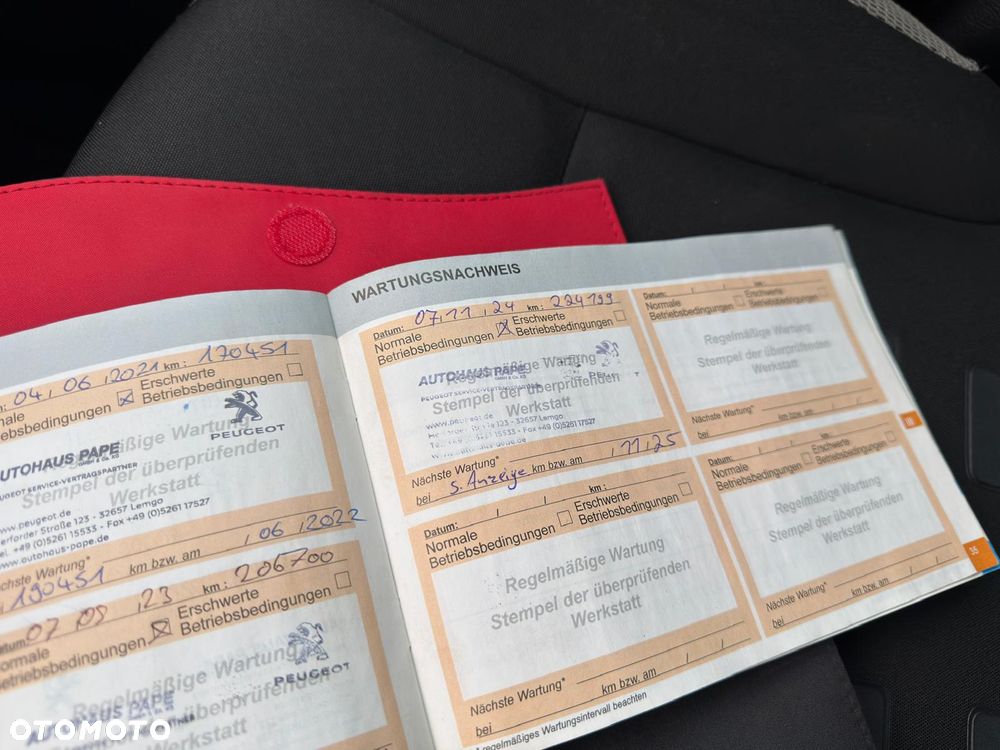 WARTUNGSNACHWEIS
04, 06, 2021 km: 170451
Erschwerte
Betriebsbedingungen
Betriebsbedingungen
Regelmäßige Wartung
Stempel der überprüfenden
Werkstatt
PEUGEOT
AUTOHAUS PAPE
GmbH & Co. KG
PEUGEOT SERVICE-VERTRAGSPARTNER
www.peugeot.de
Herforder Straße 123 - 32657 Lemgo
Tel. +49 (0)5261 15533 - Fax +49 (0)5261 17527
www.autohaus-pape.de
Nächste Wartung*
190451 km bzw. am , 06, 2022
Datum: 07 23 km: 206700
Normale
Erschwerte
Betriebsbedingungen
Betriebsbedingungen
Regelmäßige Wartung
Stempel der überprüfenden
Werkstatt
PEUGEOT
AUTOHAUS PAPE
Datum: 07, 11, 24 km: 224199
Normale
Erschwerte
Betriebsbedingungen
Betriebsbedingungen
Regelmäßige Wartung
Stempel der überprüfenden
Werkstatt
AUTOHAUS PAPE
GmbH & Co. KG
PEUGEOT SERVICE-VERTRAGSPARTNER
www.peugeot.de
123 - 32657 Lemgo
15533 - Fax +49 (0)5261 17527
Nächste Wartung*
bei s. Anzeige km bzw. am , 11, 25
Datum: / / km:
Normale
Erschwerte
Betriebsbedingungen
Betriebsbedingungen
Regelmäßige Wartung
Stempel der überprüfenden
Werkstatt
Nächste Wartung*
bei km bzw. am / /
* regelmäßiges Wartungsintervall beachten
Datum: / / km:
Normale
Erschwerte
Betriebsbedingungen
Betriebsbedingungen
Regelmäßige Wartung
Stempel der überprüfenden
Werkstatt
Nächste Wartung*
bei km bzw. am / /
Datum: / / km:
Normale
Erschwerte
Betriebsbedingungen
Betriebsbedingungen
Regelmäßige Wartung
Stempel der überprüfenden
Werkstatt
Nächste Wartung*
bei km bzw. am / /
35
OTOMOTO